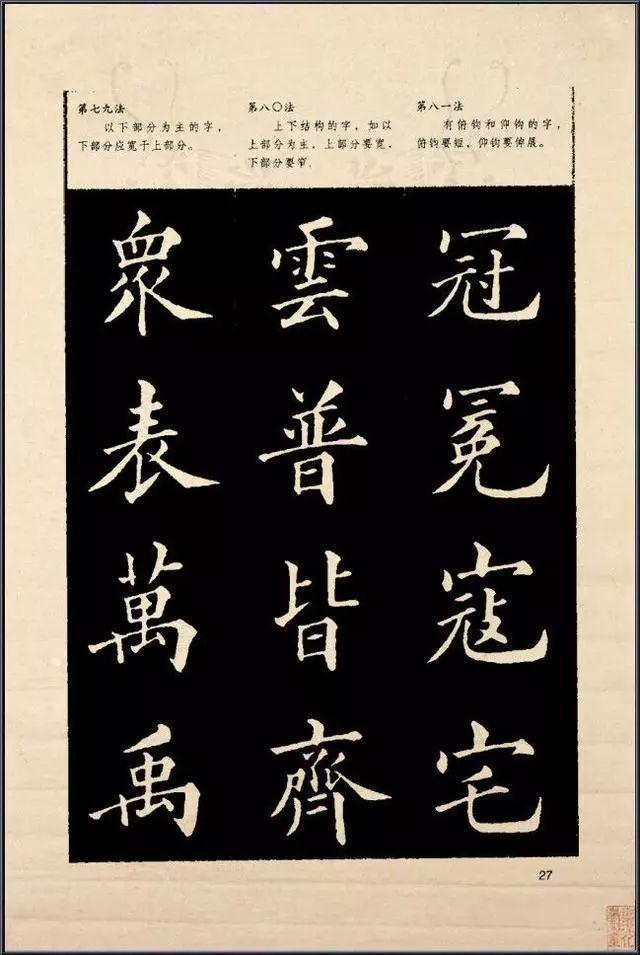 第七九法
以下部分为主的字，
下部分应宽于上部分。
第八〇法
上下结构的字，如以
上部分为主，上部分要宽，
下部分要窄。
第八一法
有俯钩和仰钩的字，
俯钩要短，仰钩要伸展。
冠冕寇宅
雲普皆齊
衆表萬禹
27